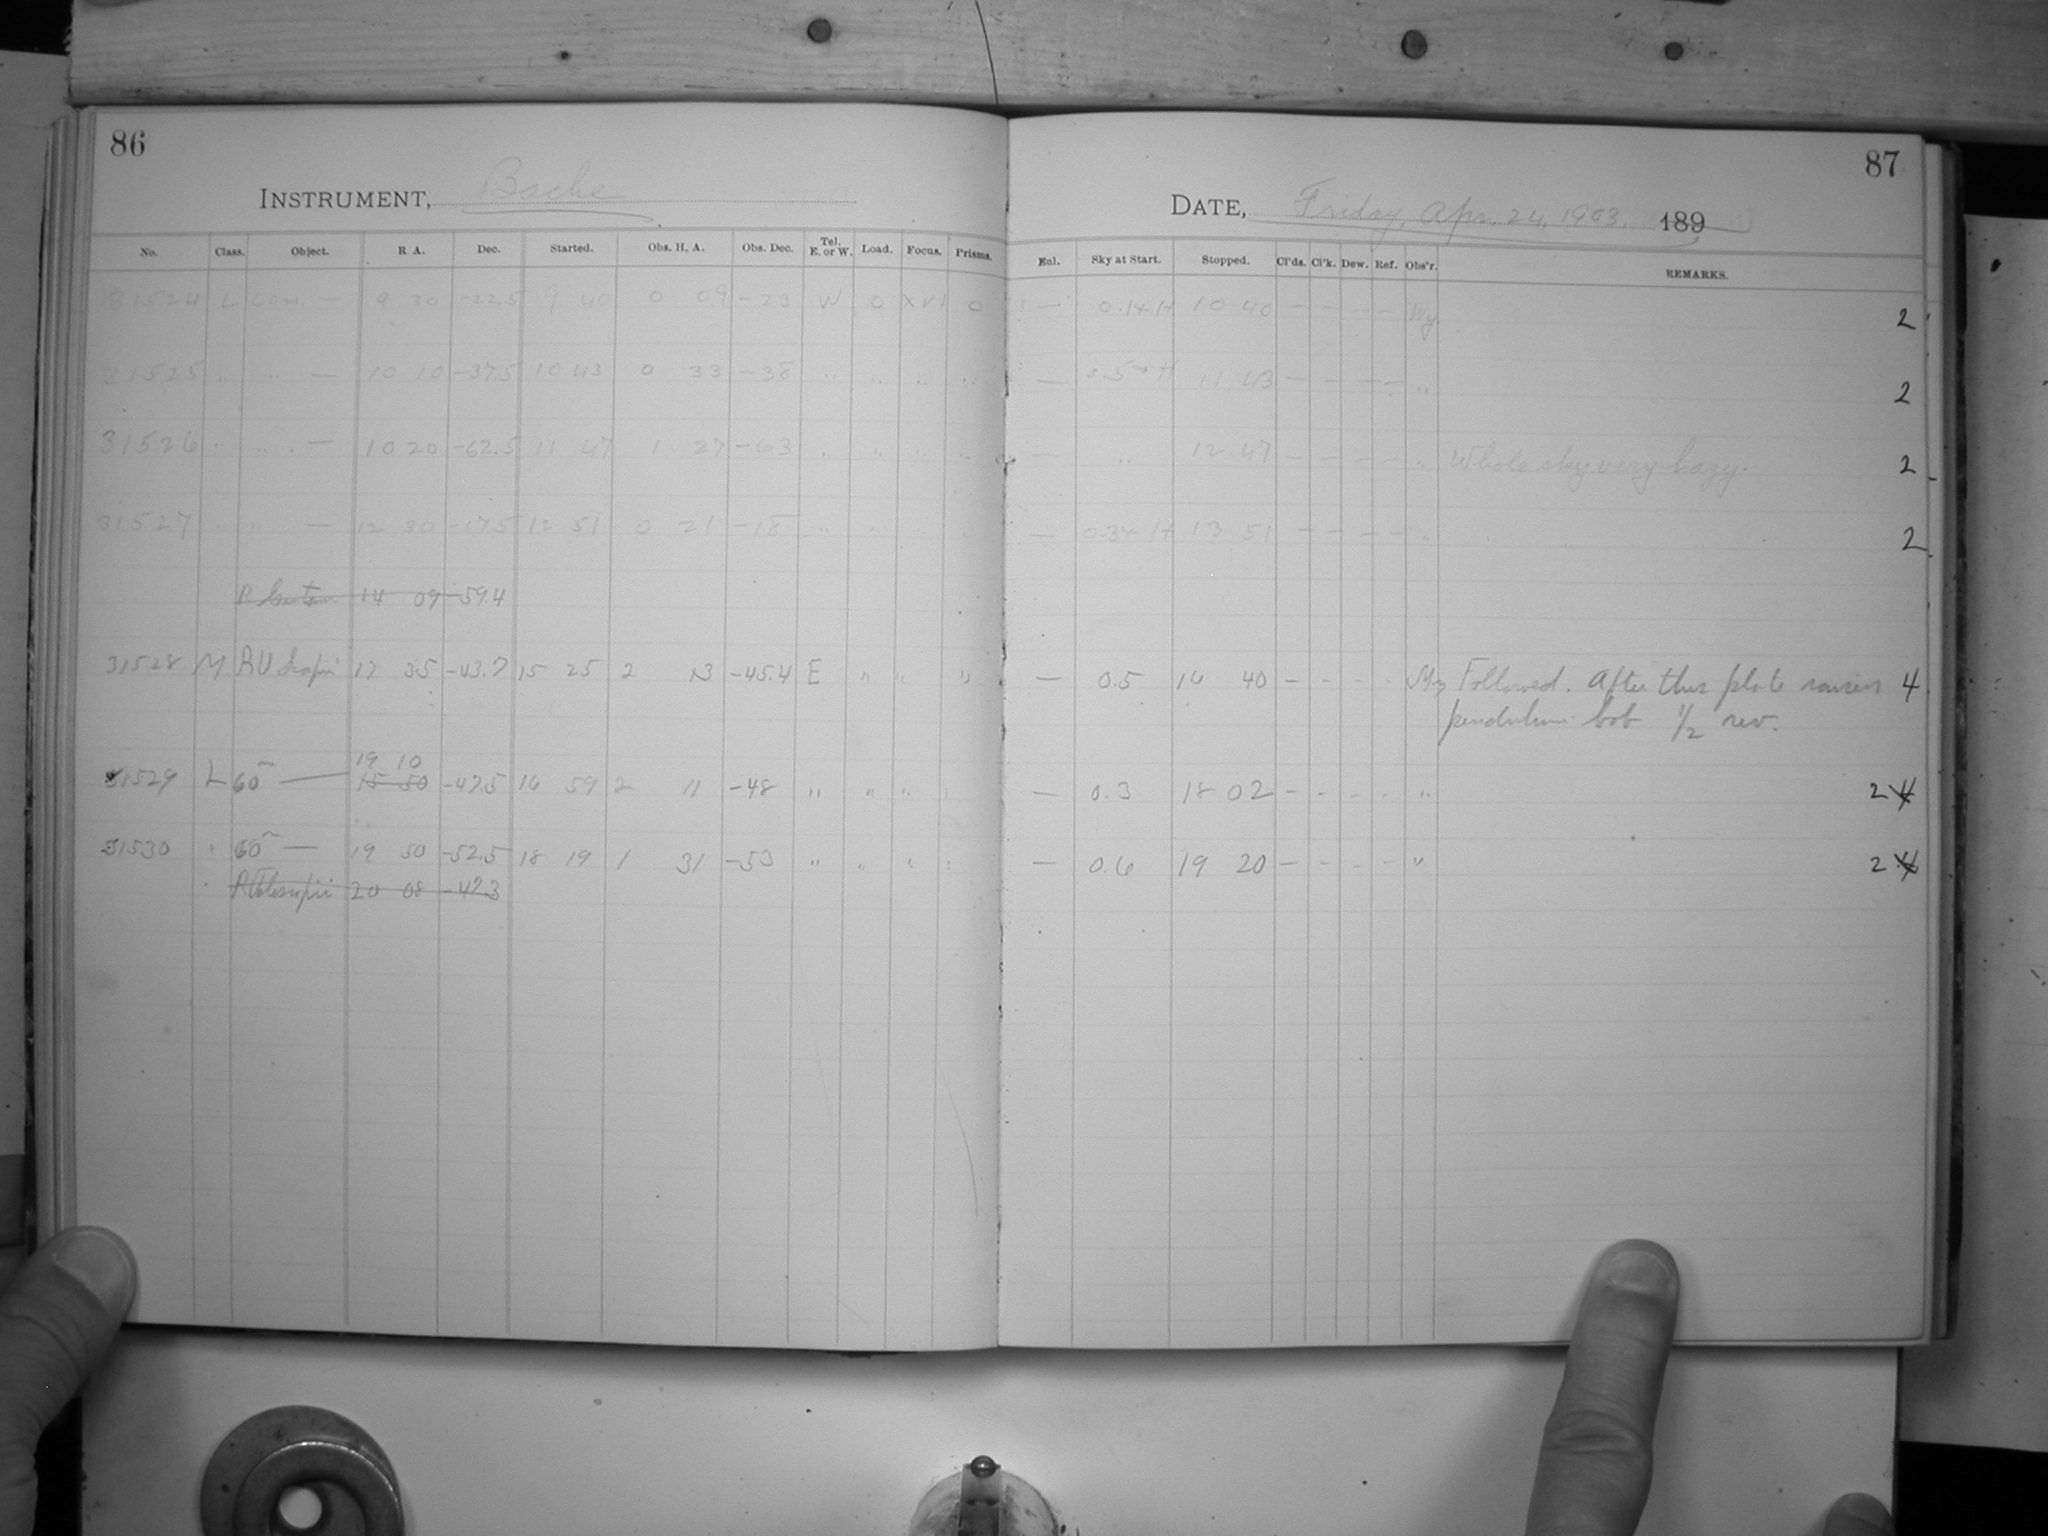 86
INSTRUMENT, Bache
No. Class. Object. R A. Dec. Started. Obs. H. A. Obs. Dec. Tel. E. or W. Load. Focus. Prisms.
31524 L 60m. — 9 30 -22.5 9 40 0 09 -23 W 0 XVI 0
31525 " " — 10 10 -37.5 10 43 0 33 -38 " " " "
31526 " " — 10 20 -62.5 11 47 1 27 -63 " " " "
31527 " " — 12 30 -17.5 12 51 0 21 -18 " " " "
R 14 09 -59.4
31528 M RU Scorpii 17 35 -43.7 15 25 2 -45.4 E " " "
19 10
31529 L 60m — 15 50 -47.5 16 59 2 11 -48 " " "
31530 " 60m — 19 50 -52.5 18 19 1 31 -53 " " "
R Telescopii 20 08 -47.3
87
DATE, Friday, Apr. 24, 1903. 189
Enl. Sky at Start. Stopped. Cl'ds. Cl'k. Dew. Ref. Obs'r. REMARKS.
— 10 40 — — — — Wy. 2
— 0.5 + H 11 43 — — — — " 2
— " 12 47 — — — — " Whole sky very hazy. 2
— 0.3+ H 13 51 — — — — " 2
— 0.5 16 40 — - - - Followed. After this plate raised 4
pendulum bob 1/2 rev.
— 0.3 18 02 — - - - " 2 4
— 0.6 19 20 — - - - " 2 4